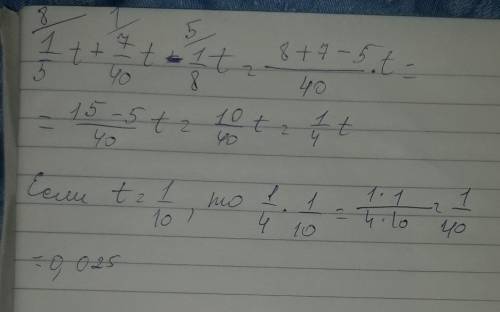 8/ 1/ 5/
1/5 t + 7/40 t - 1/8 t = (8+7-5)/40 · t =
= (15-5)/40 t = 10/40 t = 1/4 t
Если t = 1/10, то 1/4 · 1/10 = (1·1)/(4·10) = 1/40
= 0,025